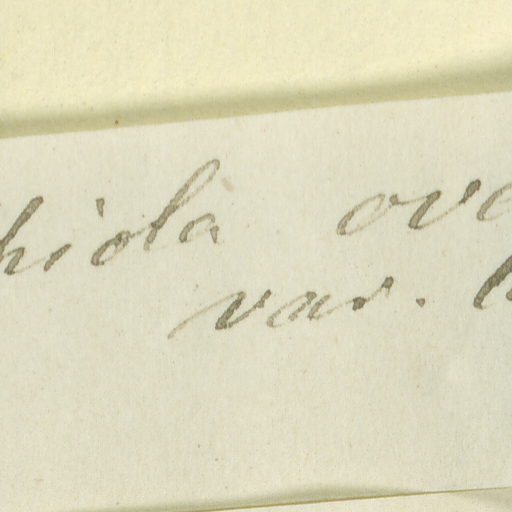 hiola ova
var.